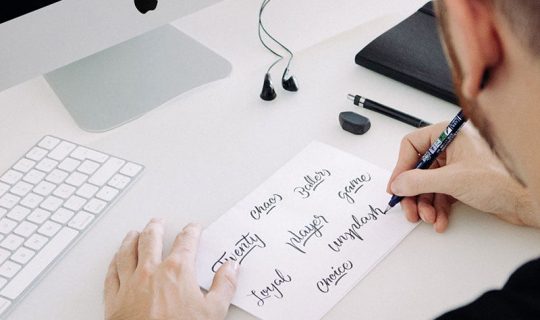 chaos Baller game
Twenty player unsplash
Loyal choice